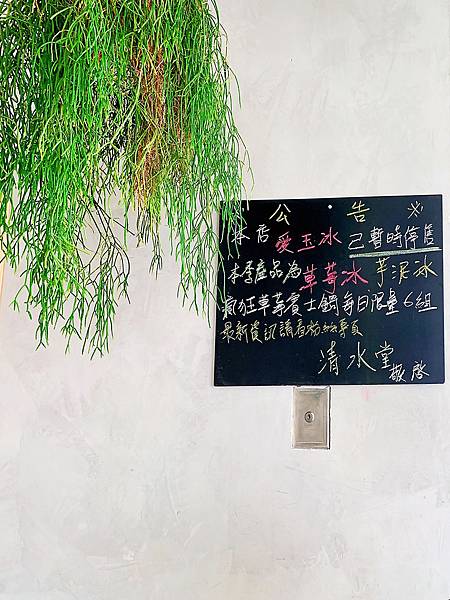 公告
本店愛玉冰已暫時停售
本季產品為草莓冰 芋泥冰
瘋狂草莓賓士鍋每日限量6組
最新資訊請看粉絲專頁
清水堂敬啓